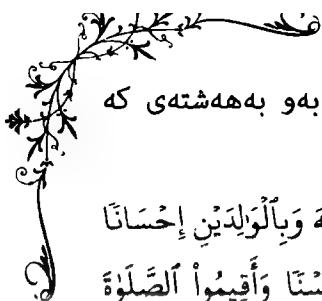 بەو بەهەشتەی کە
وَبِٱلْوَٰلِدَيْنِ إِحْسَانًا
وَأَقِيمُواْ ٱلصَّلَوٰةَ